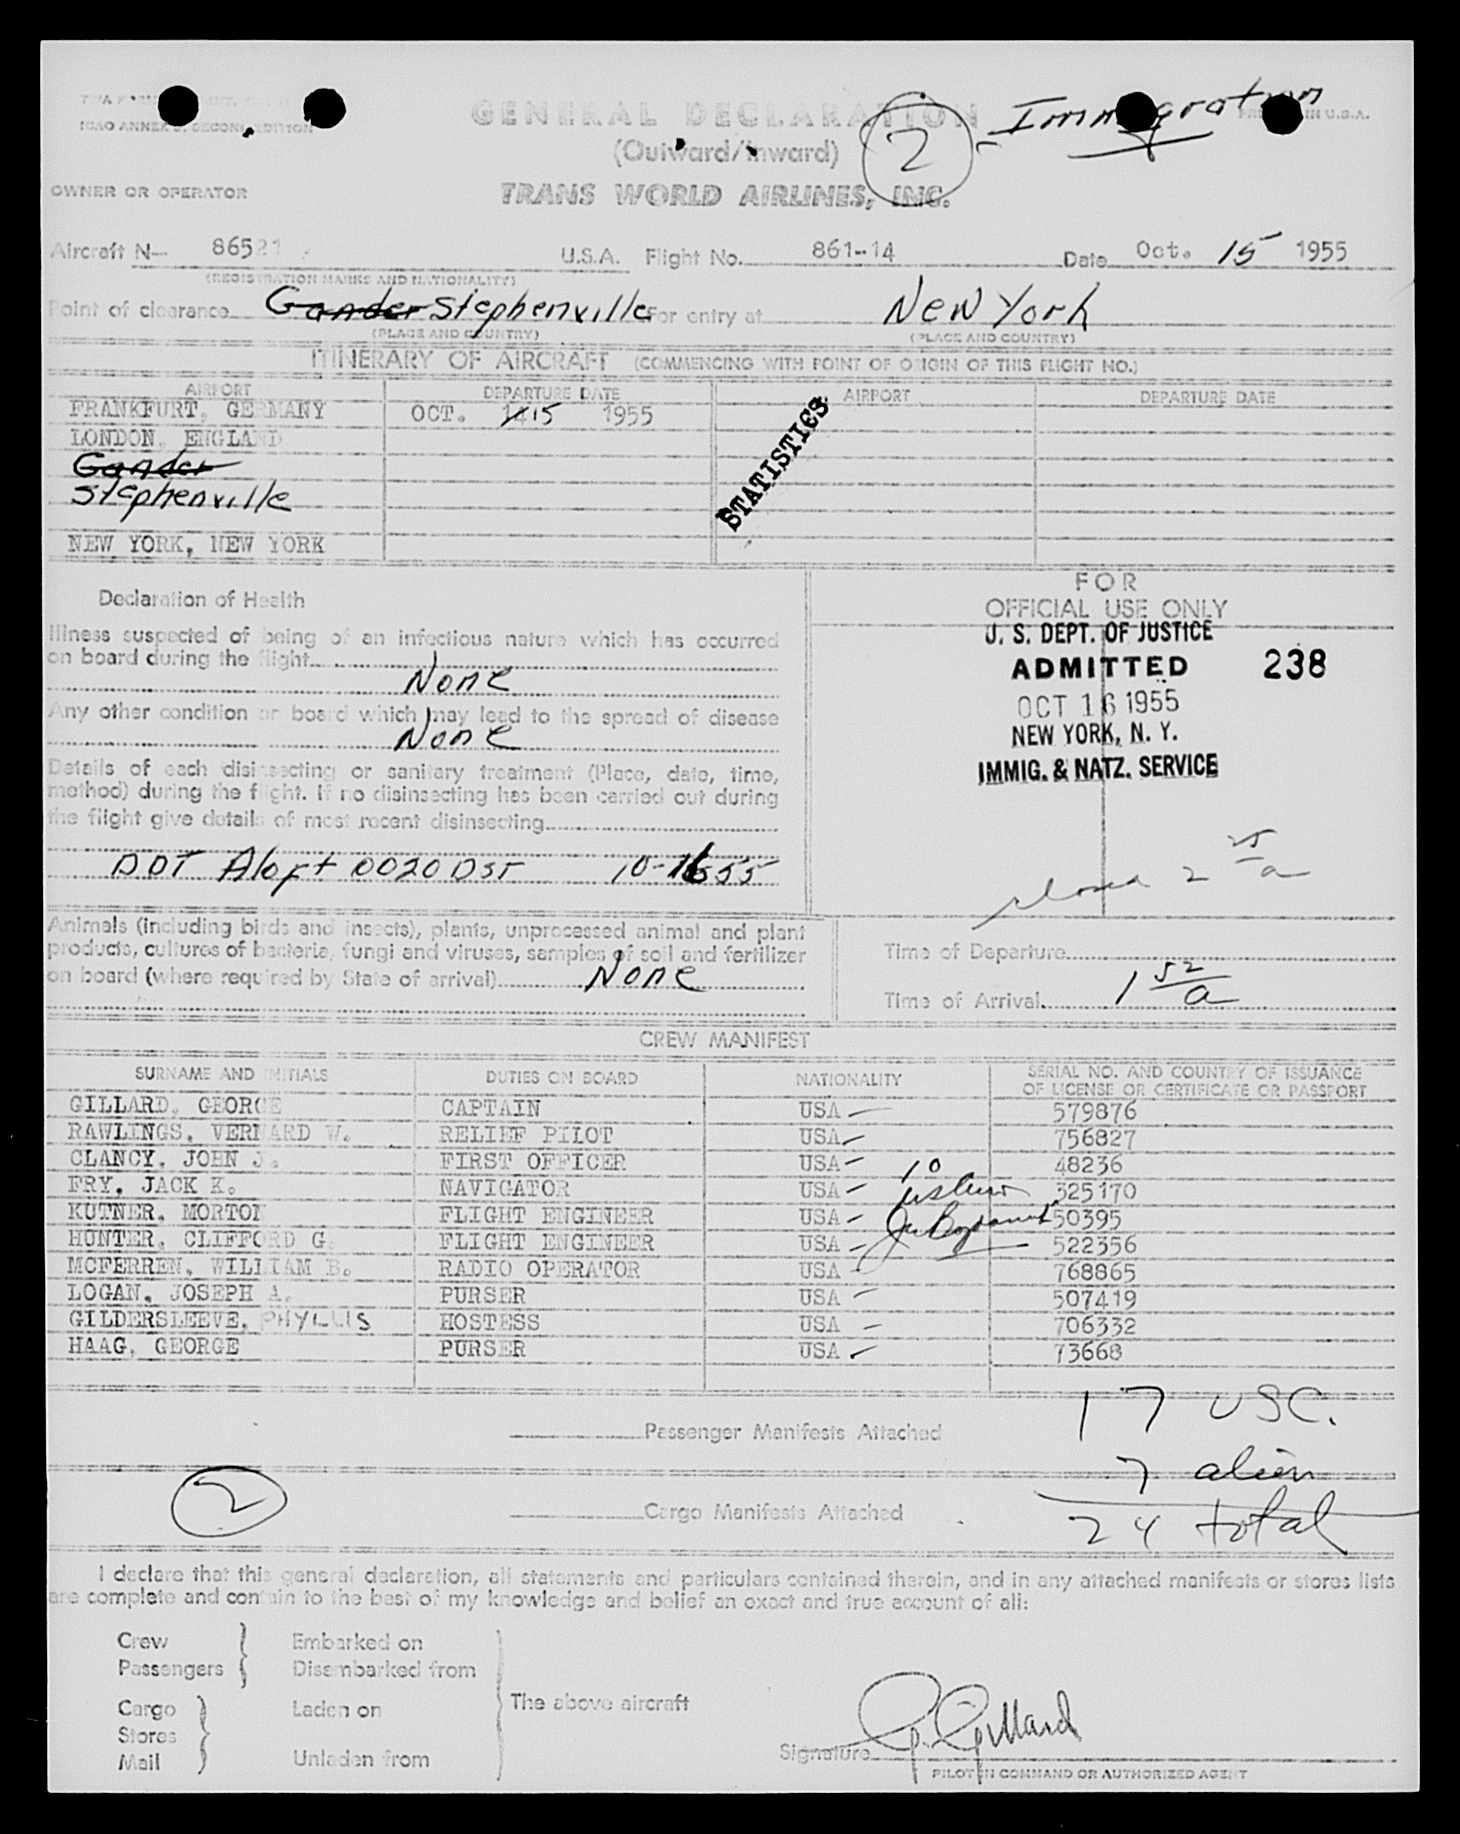 ICAO ANNEX 9, SECOND EDITION
GENERAL DECLARATION
(Outward/Inward)
2 - Immigration
IN U.S.A.
OWNER OR OPERATOR TRANS WORLD AIRLINES, INC.
Aircraft N- 86521 U.S.A. Flight No. 861-14 Date Oct. 15 1955
(REGISTRATION MARKS AND NATIONALITY)
Point of clearance Gander Stephenville For entry at New York
(PLACE AND COUNTRY) (PLACE AND COUNTRY)
ITINERARY OF AIRCRAFT (COMMENCING WITH POINT OF ORIGIN OF THIS FLIGHT NO.)
AIRPORT DEPARTURE DATE AIRPORT DEPARTURE DATE
FRANKFURT, GERMANY OCT. 14 15 1955
LONDON, ENGLAND
Gander
Stephenville
STATISTICS
NEW YORK, NEW YORK
Declaration of Health
Illness suspected of being of an infectious nature which has occurred
on board during the flight
None
Any other condition on board which may lead to the spread of disease
None
Details of each disinsecting or sanitary treatment (Place, date, time,
method) during the flight. If no disinsecting has been carried out during
the flight give details of most recent disinsecting
DDT Aloft 0020 DST 10-16 55
FOR
OFFICIAL USE ONLY
U. S. DEPT. OF JUSTICE
ADMITTED 238
OCT 16 1955
NEW YORK, N. Y.
IMMIG. & NATZ. SERVICE
closed 2 15 a
Animals (including birds and insects), plants, unprocessed animal and plant
products, cultures of bacteria, fungi and viruses, samples of soil and fertilizer
on board (where required by State of arrival) None
Time of Departure
Time of Arrival 1 52 a
CREW MANIFEST
SURNAME AND INITIALS DUTIES ON BOARD NATIONALITY SERIAL NO. AND COUNTRY OF ISSUANCE
OF LICENSE OR CERTIFICATE OR PASSPORT
GILLARD, GEORGE CAPTAIN USA 579876
RAWLINGS, VERNARD W. RELIEF PILOT USA 756827
CLANCY, JOHN J. FIRST OFFICER USA 48236
FRY, JACK K. NAVIGATOR USA 325170
KUTNER, MORTON FLIGHT ENGINEER USA 50395
HUNTER, CLIFFORD G. FLIGHT ENGINEER USA 522356
MCFERREN, WILLIAM B. RADIO OPERATOR USA 768865
LOGAN, JOSEPH A. PURSER USA 507419
GILDERSLEEVE, PHYLLIS HOSTESS USA 706332
HAAG, GEORGE PURSER USA 73668
10
17 USC.
Passenger Manifests Attached
7 alien
2
Cargo Manifests Attached
24 total
I declare that this general declaration, all statements and particulars contained therein, and in any attached manifests or stores lists
are complete and contain to the best of my knowledge and belief an exact and true account of all:
Crew Embarked on
Passengers Disembarked from
Cargo Laden on The above aircraft
Stores
Mail Unladen from
Signature G. Gillard
PILOT IN COMMAND OR AUTHORIZED AGENT